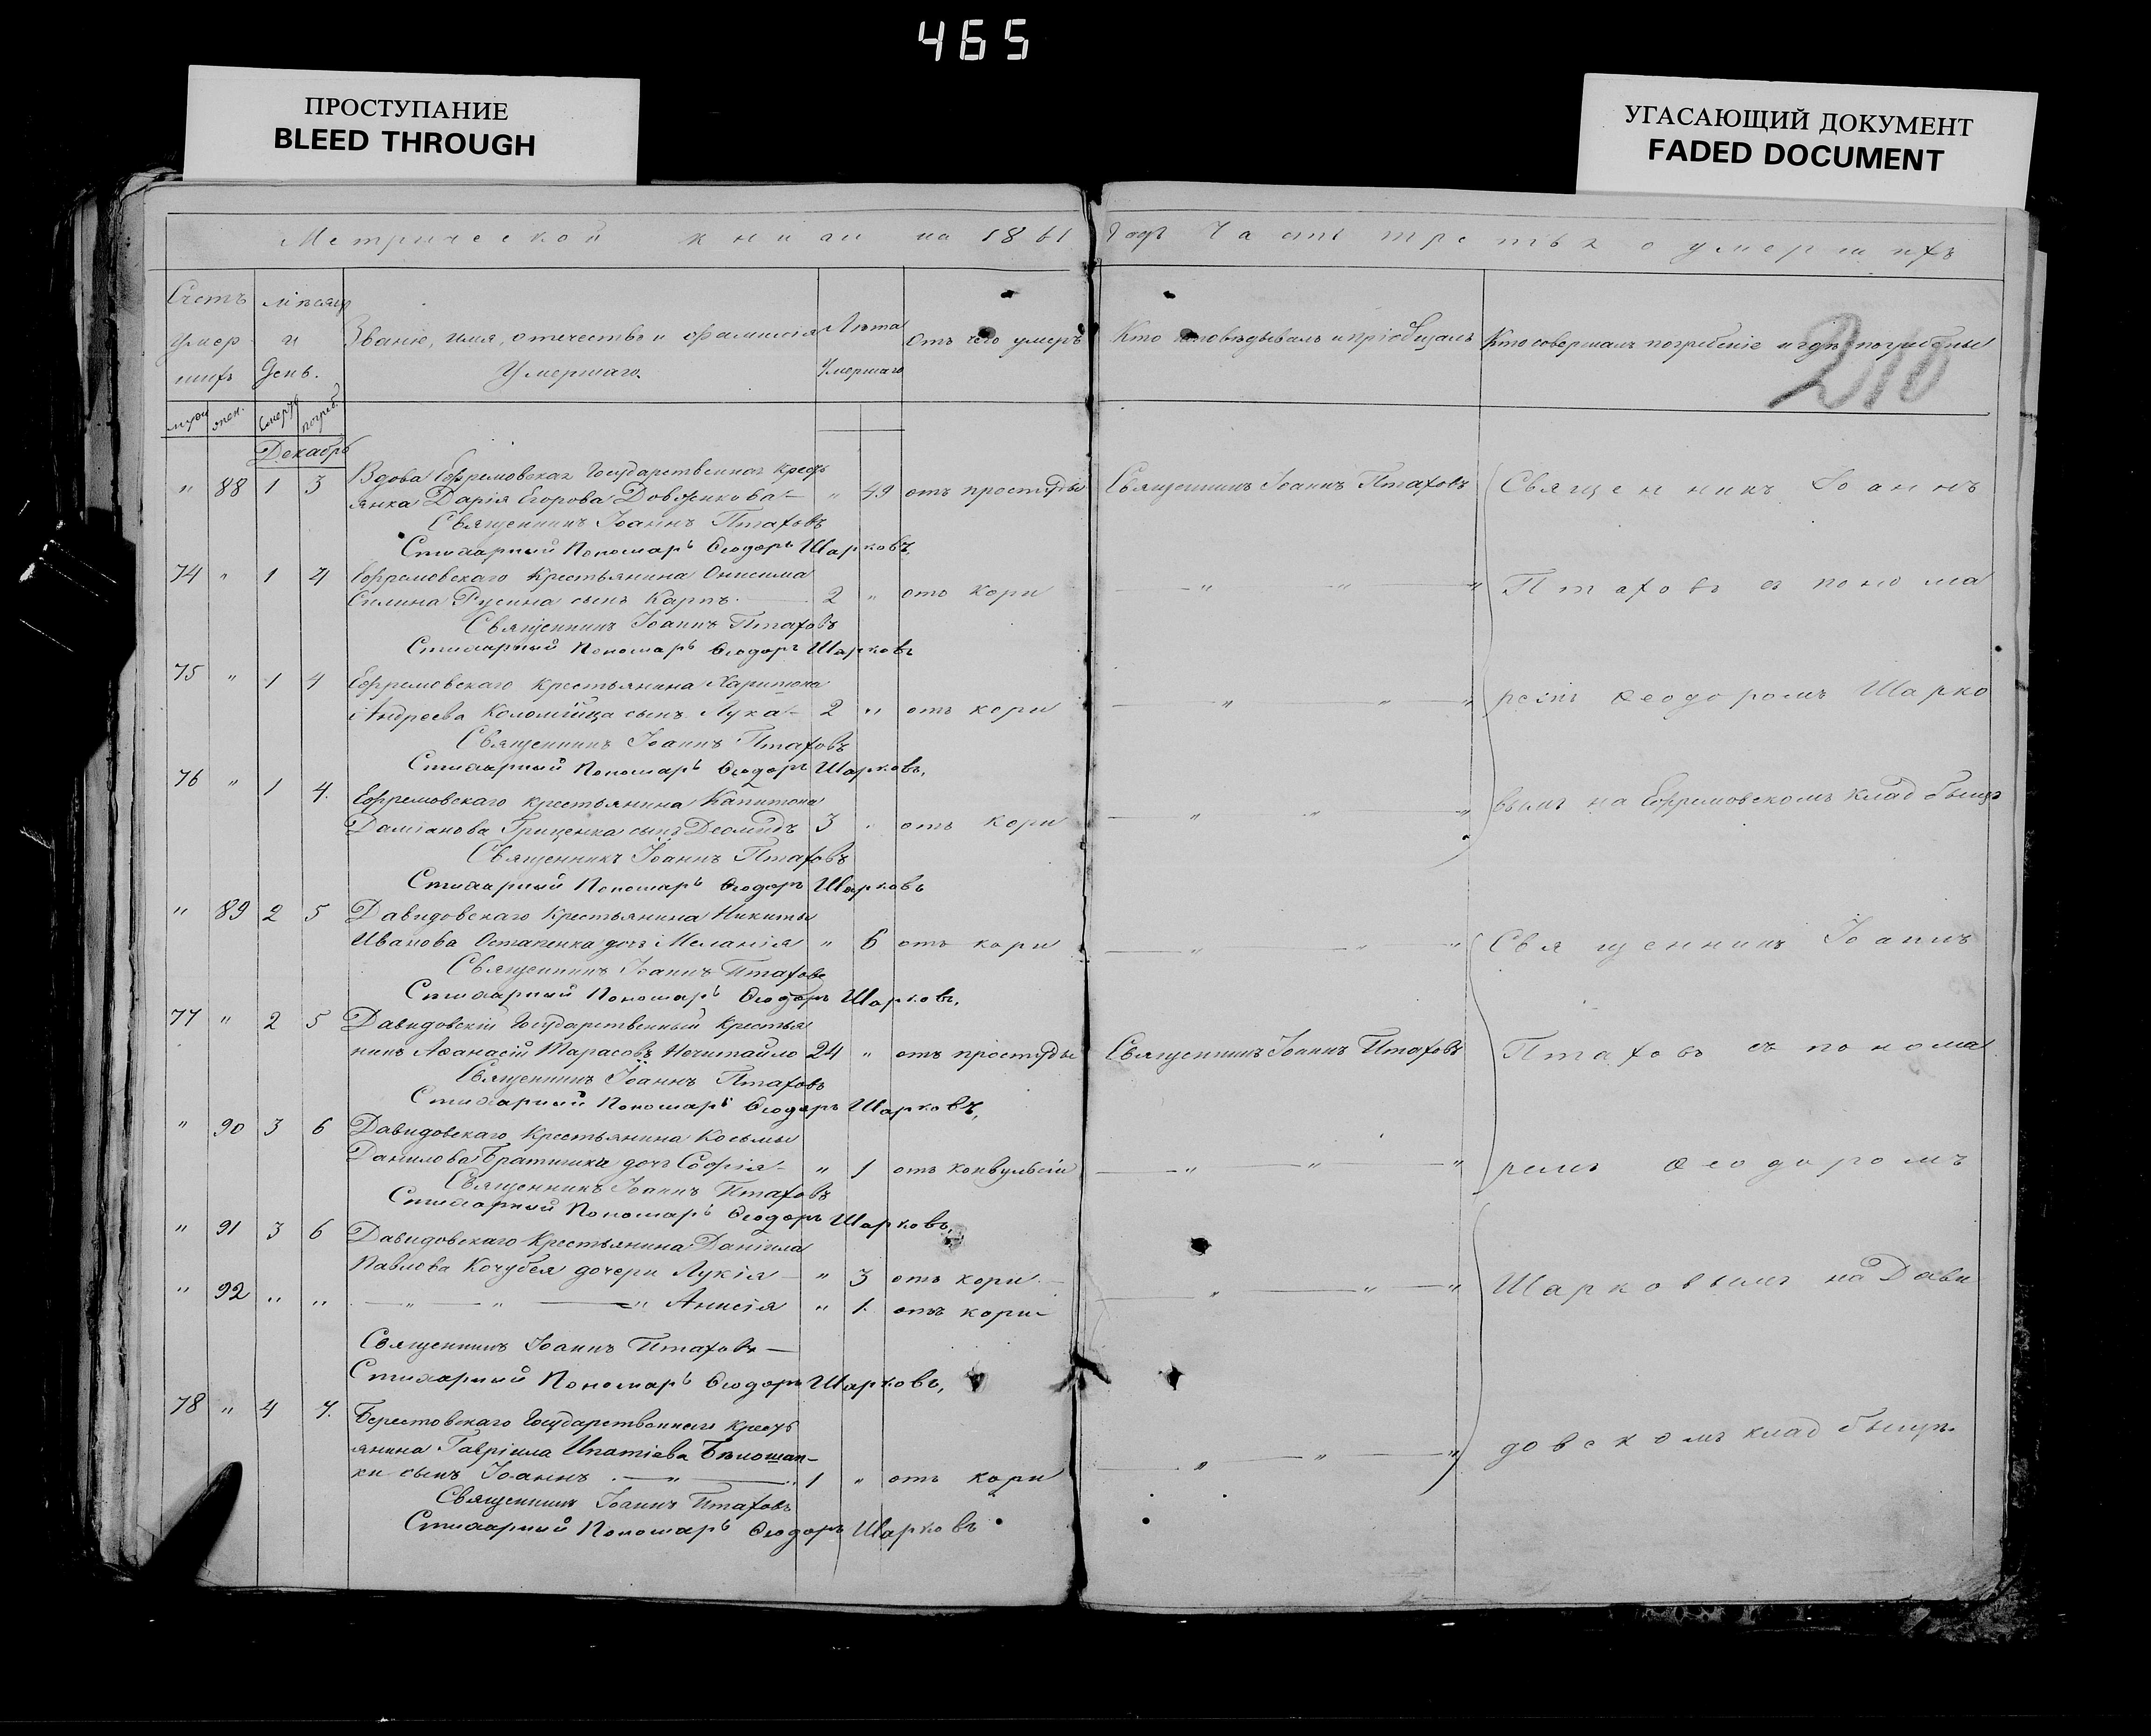 465
ПРОСТУПАНИЕ
BLEED THROUGH
УГАСАЮЩИЙ ДОКУМЕНТ
FADED DOCUMENT
Метрической книги на 1861 годъ Часть третья о умершихъ
210
Счетъ умершихъ
Мѣсяцъ и день.
Званіе, имя, отечество и фамилія Умершаго.
Лѣта Умершаго
Отъ чего умеръ
Кто исповѣдывалъ и пріобщалъ
Кто совершалъ погребеніе и гдѣ погребены
муж. жен. смерт. погреб.
Декабрь
Вдова Ефремовская Государственная кресть
" 88 1 3 янка Дарія Егорова Довженкова " 49 отъ простуды Священникъ Іоаннъ Птаховъ Священникъ Іоаннъ
Священникъ Іоаннъ Птаховъ
Стихарный Пономарь Ѳеодоръ Шарковъ
74 " 1 4 Ефремовскаго Крестьянина Онисима
Силина Русина сынъ Карпъ 2 " отъ кори " " " Птаховъ съ понома
Священникъ Іоаннъ Птаховъ
Стихарный Пономарь Ѳеодоръ Шарковъ
75 " 1 4 Ефремовскаго Крестьянина Харитона
Андреева Коломійца сынъ Лука 2 " отъ кори " " " ремъ Ѳеодоромъ Шарко
Священникъ Іоаннъ Птаховъ
Стихарный Пономарь Ѳеодоръ Шарковъ.
76 " 1 4. Ефремовскаго крестьянина Капитона
Даміанова Гриценка сынъ Деомидъ 3 " отъ кори " " " вымъ на Ефремовскомъ кладбищѣ
Священникъ Іоаннъ Птаховъ
Стихарный Пономарь Ѳеодоръ Шарковъ
" 89 2 5 Давидовскаго Крестьянина Никиты
Иванова Остапенка дочь Меланія " 6 отъ кори " " " Священникъ Іоаннъ
Священникъ Іоаннъ Птаховъ
Стихарный Пономарь Ѳеодоръ Шарковъ.
77 " 2 5 Давидовскій Государственный Крестья
нинъ Аѳанасій Тарасовъ Ночитайло 24 " отъ простуды Священникъ Іоаннъ Птаховъ Птаховъ съ понома
Священникъ Іоаннъ Птаховъ
Стихарный Пономарь Ѳеодоръ Шарковъ,
" 90 3 6 Давидовскаго Крестьянина Косьмы
Данилова Братишка дочь Софія " 1 отъ конвульсіи " " " ремъ Ѳеодоромъ
Священникъ Іоаннъ Птаховъ
Стихарный Пономарь Ѳеодоръ Шарковъ,
" 91 3 6 Давидовскаго Крестьянина Даніила
Павлова Кочубея дочери Лукія " 3 отъ кори " " " Шарковымъ на Дави
" 92 " " " " " Анисія " 1. отъ кори
Священникъ Іоаннъ Птаховъ
Стихарный Пономарь Ѳеодоръ Шарковъ,
78 " 4 7. Берестовскаго Государственнаго кресть
янина Гавріила Ипатіева Бѣлошап-
ки сынъ Іоаннъ " 1 " отъ кори " " " довскомъ кладбищѣ.
Священникъ Іоаннъ Птаховъ
Стихарный Пономарь Ѳеодоръ Шарковъ